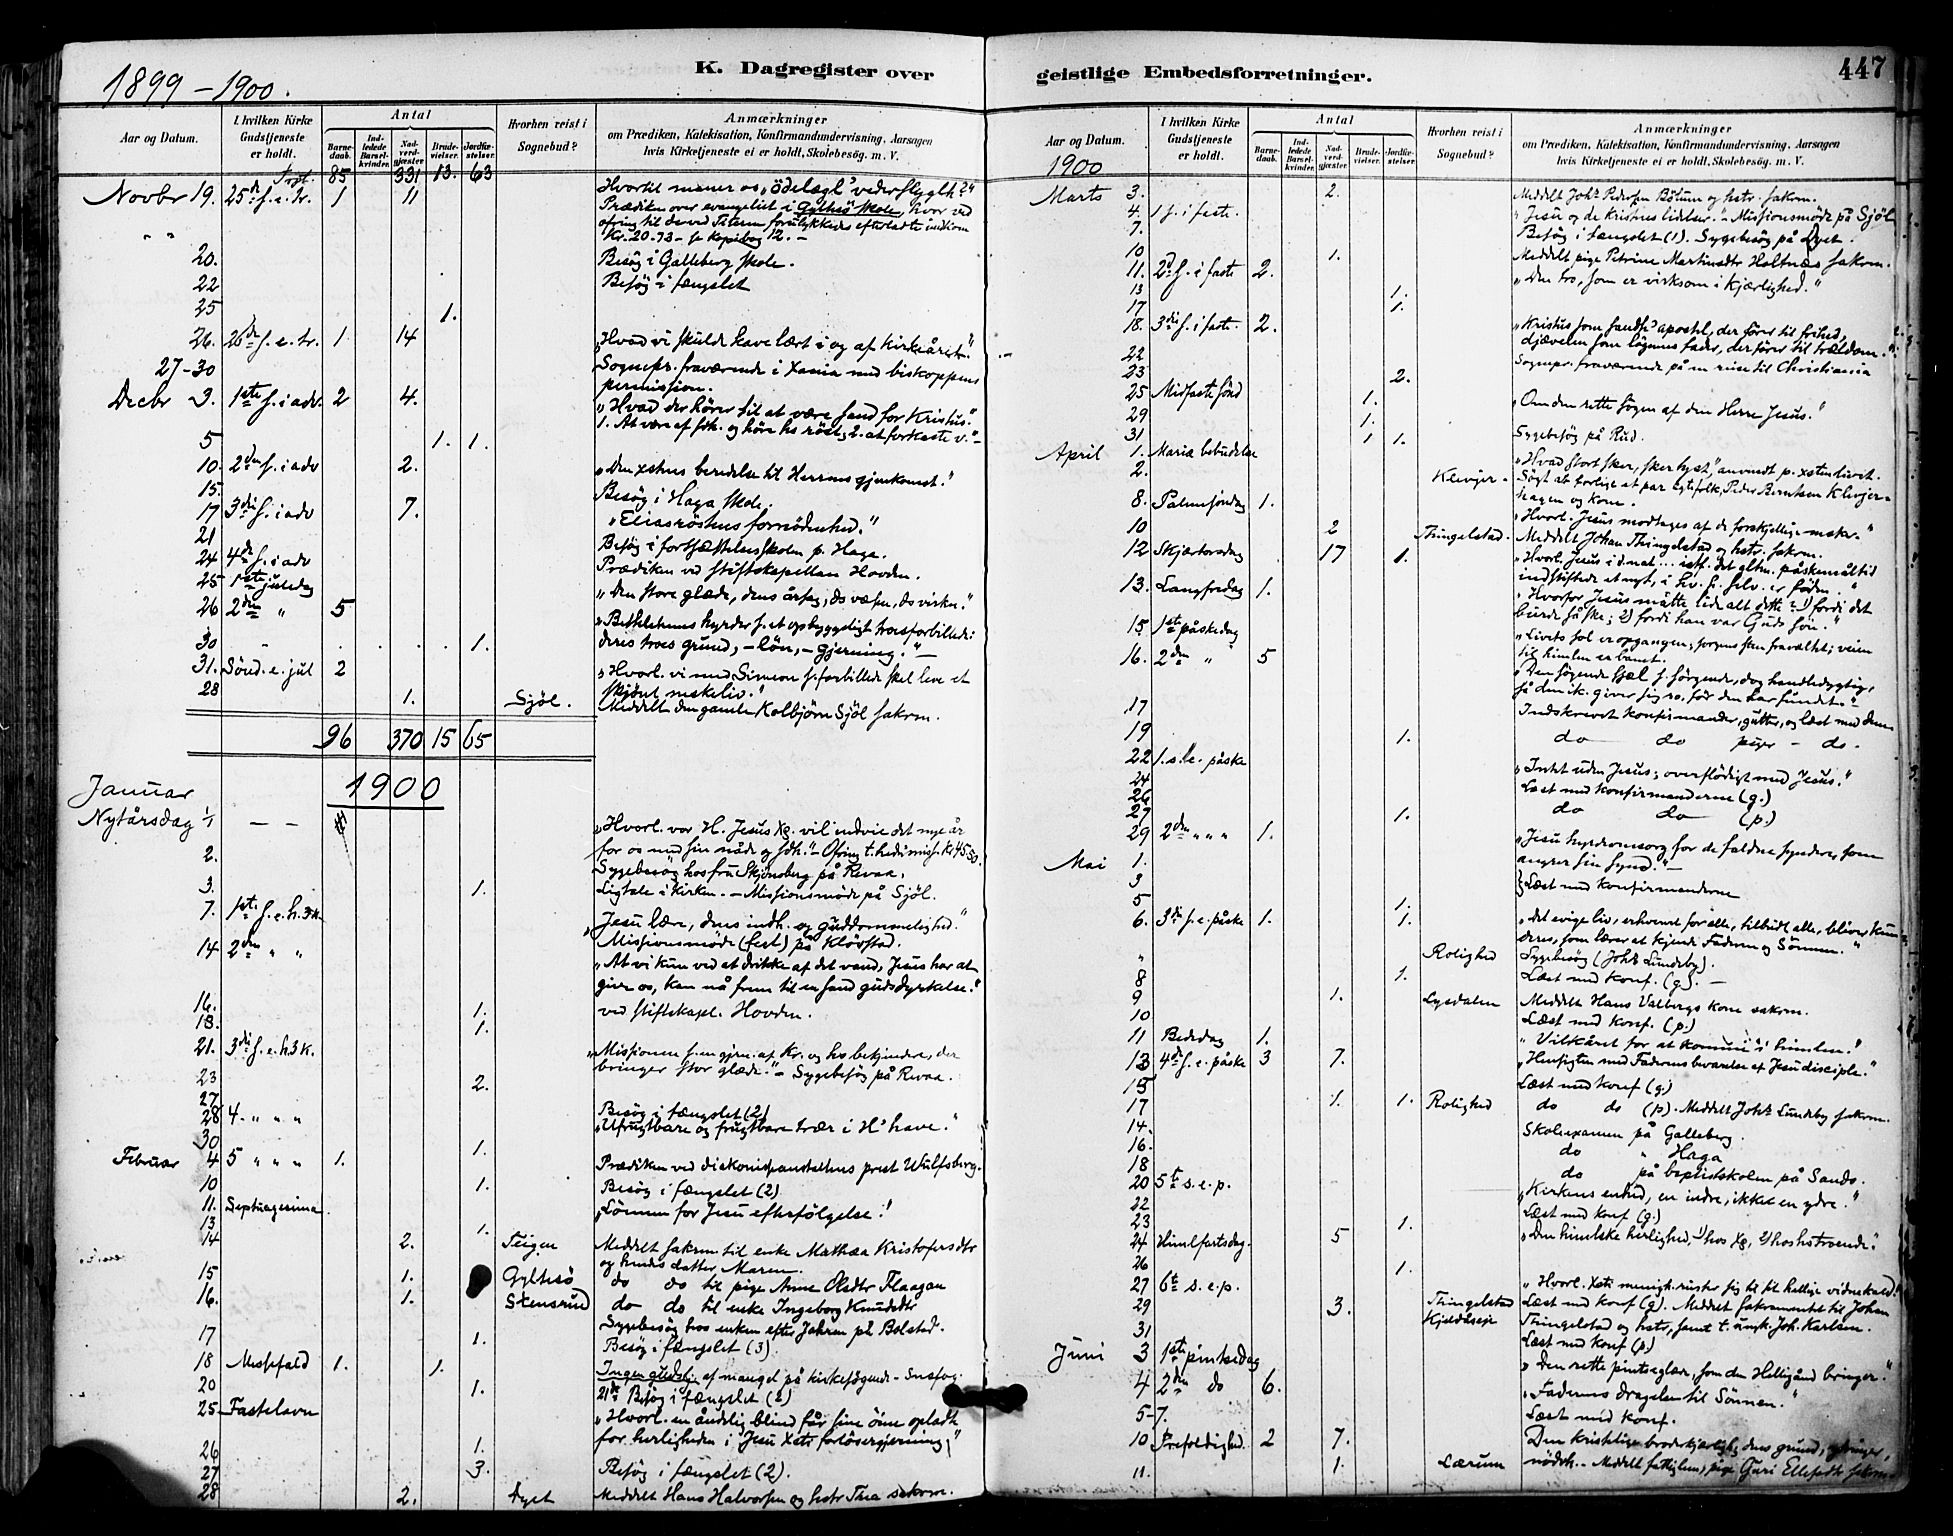 K. Dagregister over
geistlige Embedsforretninger.
447
1899 – 1900.
Aar og Datum.
I hvilken Kirke Gudstjeneste er holdt.
Antal
Barne-daab.
Ind-ledede Barsel-kvinder.
Nad-verd-gjæster
Brude-vielser.
Jordfæ-stelser.
Hvorhen reist i Sognebud?
Anmærkninger
om Prædiken, Katekisation, Konfirmandundervisning, Aarsagen
hvis Kirketjeneste ei er holdt, Skolebesög. m. V.
Trpt. 85 331 13. 63
Novbr 19. 25de s. e. tr. 1 11
Prædiken over evangeliet i Gyltesö skole, hvor ved
Kr. 20.73 – kopibog 12. –
20. Besög i Galleberg skole.
22 Besög i fængslet
25 1.
26. 26de s. e. tr. 1 14 „Hvad vi skulde have lært i og af kirkeåret."
27-30 Sognepr. fraværende i Xania med biskoppens
permission.
Decbr 3. 1ste s. i adv. 2 4. „Hvad der hører til at være sand for Kristus."
5 1. 1.
10. 2den s. i adv 2. Herrens gjenkomst."
15. Besög i Haga skole.
17 3die s. i adv 7. „Eliasröstens fornödenhed."
21 Besög i fortsættelsesskolen p. Haga.
24 4de s. i adv Prædiken ved stiftskapellan Hovden.
25 1ste juledag „Den store glæde, dens årsag, ds væsen, ds virkn."
26 2den „ 5 „Bethlehems hyrder s. et opbyggeligt troesforbillede:
30 1. deres troes grund, – lön, – gjerning." –
31. Sönd. e. jul 2 „Hvorl. vi med Simeon s. forbillede skal leve et
skjönt menskeliv."
28 1. Sjöl. Meddelt den gamle Kolbjörn Sjöl sakrm.
96 370 15 65
1900
Januar
Nytårsdag 1/1 – – „Hvorl. vor H. Jesus Xp. vil indvie det nye år
for os med sin nåde og sdh." – Ofring t. hedn. miss. Kr 45.50.
2. Sygebesög hos fru Skjönsberg på Revaa.
3. 1. Ligtale i kirken. – Missionsmöde på Sjöl.
7. 1ste s. e. h. 3 k. „Jesu lære, dens indh. og guddommelighed."
Missionsmöde (fest) på Klöostad.
14 2den „ „ „At vi kun ved at drikke af det vand, Jesus har at
give os, kan nå frem til en sand gudsdyrkelse."
16. 1. ved stiftskapel. Hovden.
18. 1.
21. 3die s. e. h. 3 k. „Missionen s. en gjern. af Kr. og hs bekjendere, der
bringer stor glæde." – Sygebesög på Revaa.
23 2.
27 Besög i fængslet (2)
28 4. „ „ „ „Ufrugtbare og frugtbare trær i H' have."
30 1.
Februar 4 5 „ „ „ 1. Prædiken ved diakonisseanstaltens prest Wulfsberg.
10 1. Besög i fængslet (2)
11. Septuagesima „Lönnen for Jesu efterfölgelse."
13 1.
14 2. Teigen Meddelt sakrm til enke Mathea Kristofersdtr
og hendes datter Maren.
15 1. Gyltesö do do til pige Anne Olsdtr Flaagan
16. 1. Stensrud do do til enke Ingeborg Knudsdtr
Sygebesög hos enken efter på Bolstad.
17 1. Besög i fængslet (3).
18 Messefald 1. 1. Ingen af mangel på kirkesögende. – Snefog.
20 1. 21de Besög i fængslet (2)
25 Fastelavn „Hvorl. en åndelig blind får sine öine opladte
for herligheden i Jesu Xsti forlösergjerning."
26 1.
27 3. Besög i fængslet (2).
28 2. Dyet Meddelt Hans Halvorsen og hstr Thea sakrm.
Aar og Datum.
1900
I hvilken Kirke Gudstjeneste er holdt.
Antal
Barne-daab.
Ind-ledede Barsel-kvinder.
Nad-verd-gjæster
Brude-vielser.
Jordfæ-stelser.
Hvorhen reist i Sognebud?
Anmærkninger
om Prædiken, Katekisation, Konfirmandundervisning, Aarsagen
hvis Kirketjeneste ei er holdt, Skolebesög. m. V.
Marts 3. 2. Meddelt Johs Pedersen Bötum og hstr. sakrm.
4. 1 s. i faste. „Jesu og de kristnes lidelser." – Missionsmöde på Sjöl
7. Besög i fængslet (1). Sygebesög på Dyet.
10 1. Meddelt pige Petrine Martinsdtr Holtnæs sakrm.
11. 2d s. i faste 2. „Den tro, som er virksom i kjærlighed."
13 1.
17 1.
18. 3die s. i faste. 2. „Kristus som sandhs apostel, der förer til frihed,
djævelen som lögnens fader, der förer til trældom."
22
23 2. Sognepr. fraværende på en reise til Christiania
25 Midfaste sönd 1. „Om den rette sögen af den Herre Jesus."
29 1.
31 1 1. Sygebesög på Rud.
April 1. Maria bebudelse „Hvad stort sker, sker tyst," anvendt p. xstendlivet.
2. Klevjer- Sögt at forlige et par egtefolk, Peder Berntsen Klevjer-
hagen og kone.
8. Palmesöndag 1. „Hvorl. Jesus modtages af de forskjellige mskr."
10 2 Thingelstad. Meddelt Johan Thingelstad og hstr. sakrm.
12 Skjærtorsdag 17 1. „Hvorl. Jesus i d. nat ... istf. det gltm. påskemåltid
indstiftede et nyt, i hv. h. selv er föden."
13. Langfredag 1. „Hvorfor Jesus måtte lide alt dette: 1) fordi det
burde så ske; 2) fordi han var Guds sön."
15 1ste påskedag „Livets sol er opgangen; sorgens sten fravæltet; veien
til himlen er banet.
16. 2den „ 5 „Den sögende sjæl s. sörgende, dog handledygtig,
så den ik. giver sig ro, för den har fundet."
17 Indskrevet konfirmander, gutter, og læst med dem
19 1. do do piger – do.
22 1. s. e. påske „Intet uden Jesus; overflödigt med Jesus."
24 Læst med konfirmanderne (g.)
26 do do (p.)
27 1.
29 2den „ „ „ 1. „Jesu hyrdeomsorg for de faldne syndere, som
angrer sin synd." –
Mai 1.
3 } Læst med konfirmanderne
5 1.
6. 3die s. e. påske 1. 1. „Det evige liv, erhvervet for alle, tilbudt alle, bliver kun
deres, som lærer at kjende Faderen og Sönnen."
„ Rolighed Sygebesög (Johs Lundeby).
8 1. Læst med konf. (g). –
9 1. Lysdalen Meddelt Hans Valbergs kone sakrm.
10 Læst med konf. (p.)
11 Bededag 1. „Vilkåret for at komme i himlen."
13 4de s. e. påske 3 7. „Hensigten med Faderens bevarelse af Jesu disciple."
15 Læst med konf (g.)
17 1. 1. Rolighed do do (p). Meddelt Johs Lundeby sakrm.
14. Skoleexamen på Galleberg.
16. do „ Haga
18 do på baptistskolen på Sande.
20 5te s. e. p. „Kirkens enhed, en indre, ikke en ydre."
22 Læst med konf (g.)
23 1.
24 Himlfartsdag. 5 „Den himlske herlighed, 1) hos Xp, 2) hos hs troende."
26 1.
27 6te s. e. p. „Hvorl. Xsti menigh. ruster sig til sit hellige vidnekald."
29 3. Thingelstad Læst med konf (g). Meddelt sakramentet til Johan
31 Kjeldåseje Thingelstad og hstr, samt t. ungk. Joh. Karlsen.
Læst med konf (p.)
Juni 3 1ste pintsedag „Den rette pintseglæde, som den Helligånd bringer."
4 2den do 6. „Faderens dragelse til Sönnen."
5-7. Læst med konf.
10 Trefoldighed. 2 7. Den kristelige broderkjærligh, dens grund,
11. 1. Lærum Meddelt fattiglem, pige Guri Ellefsdtr sakrm.